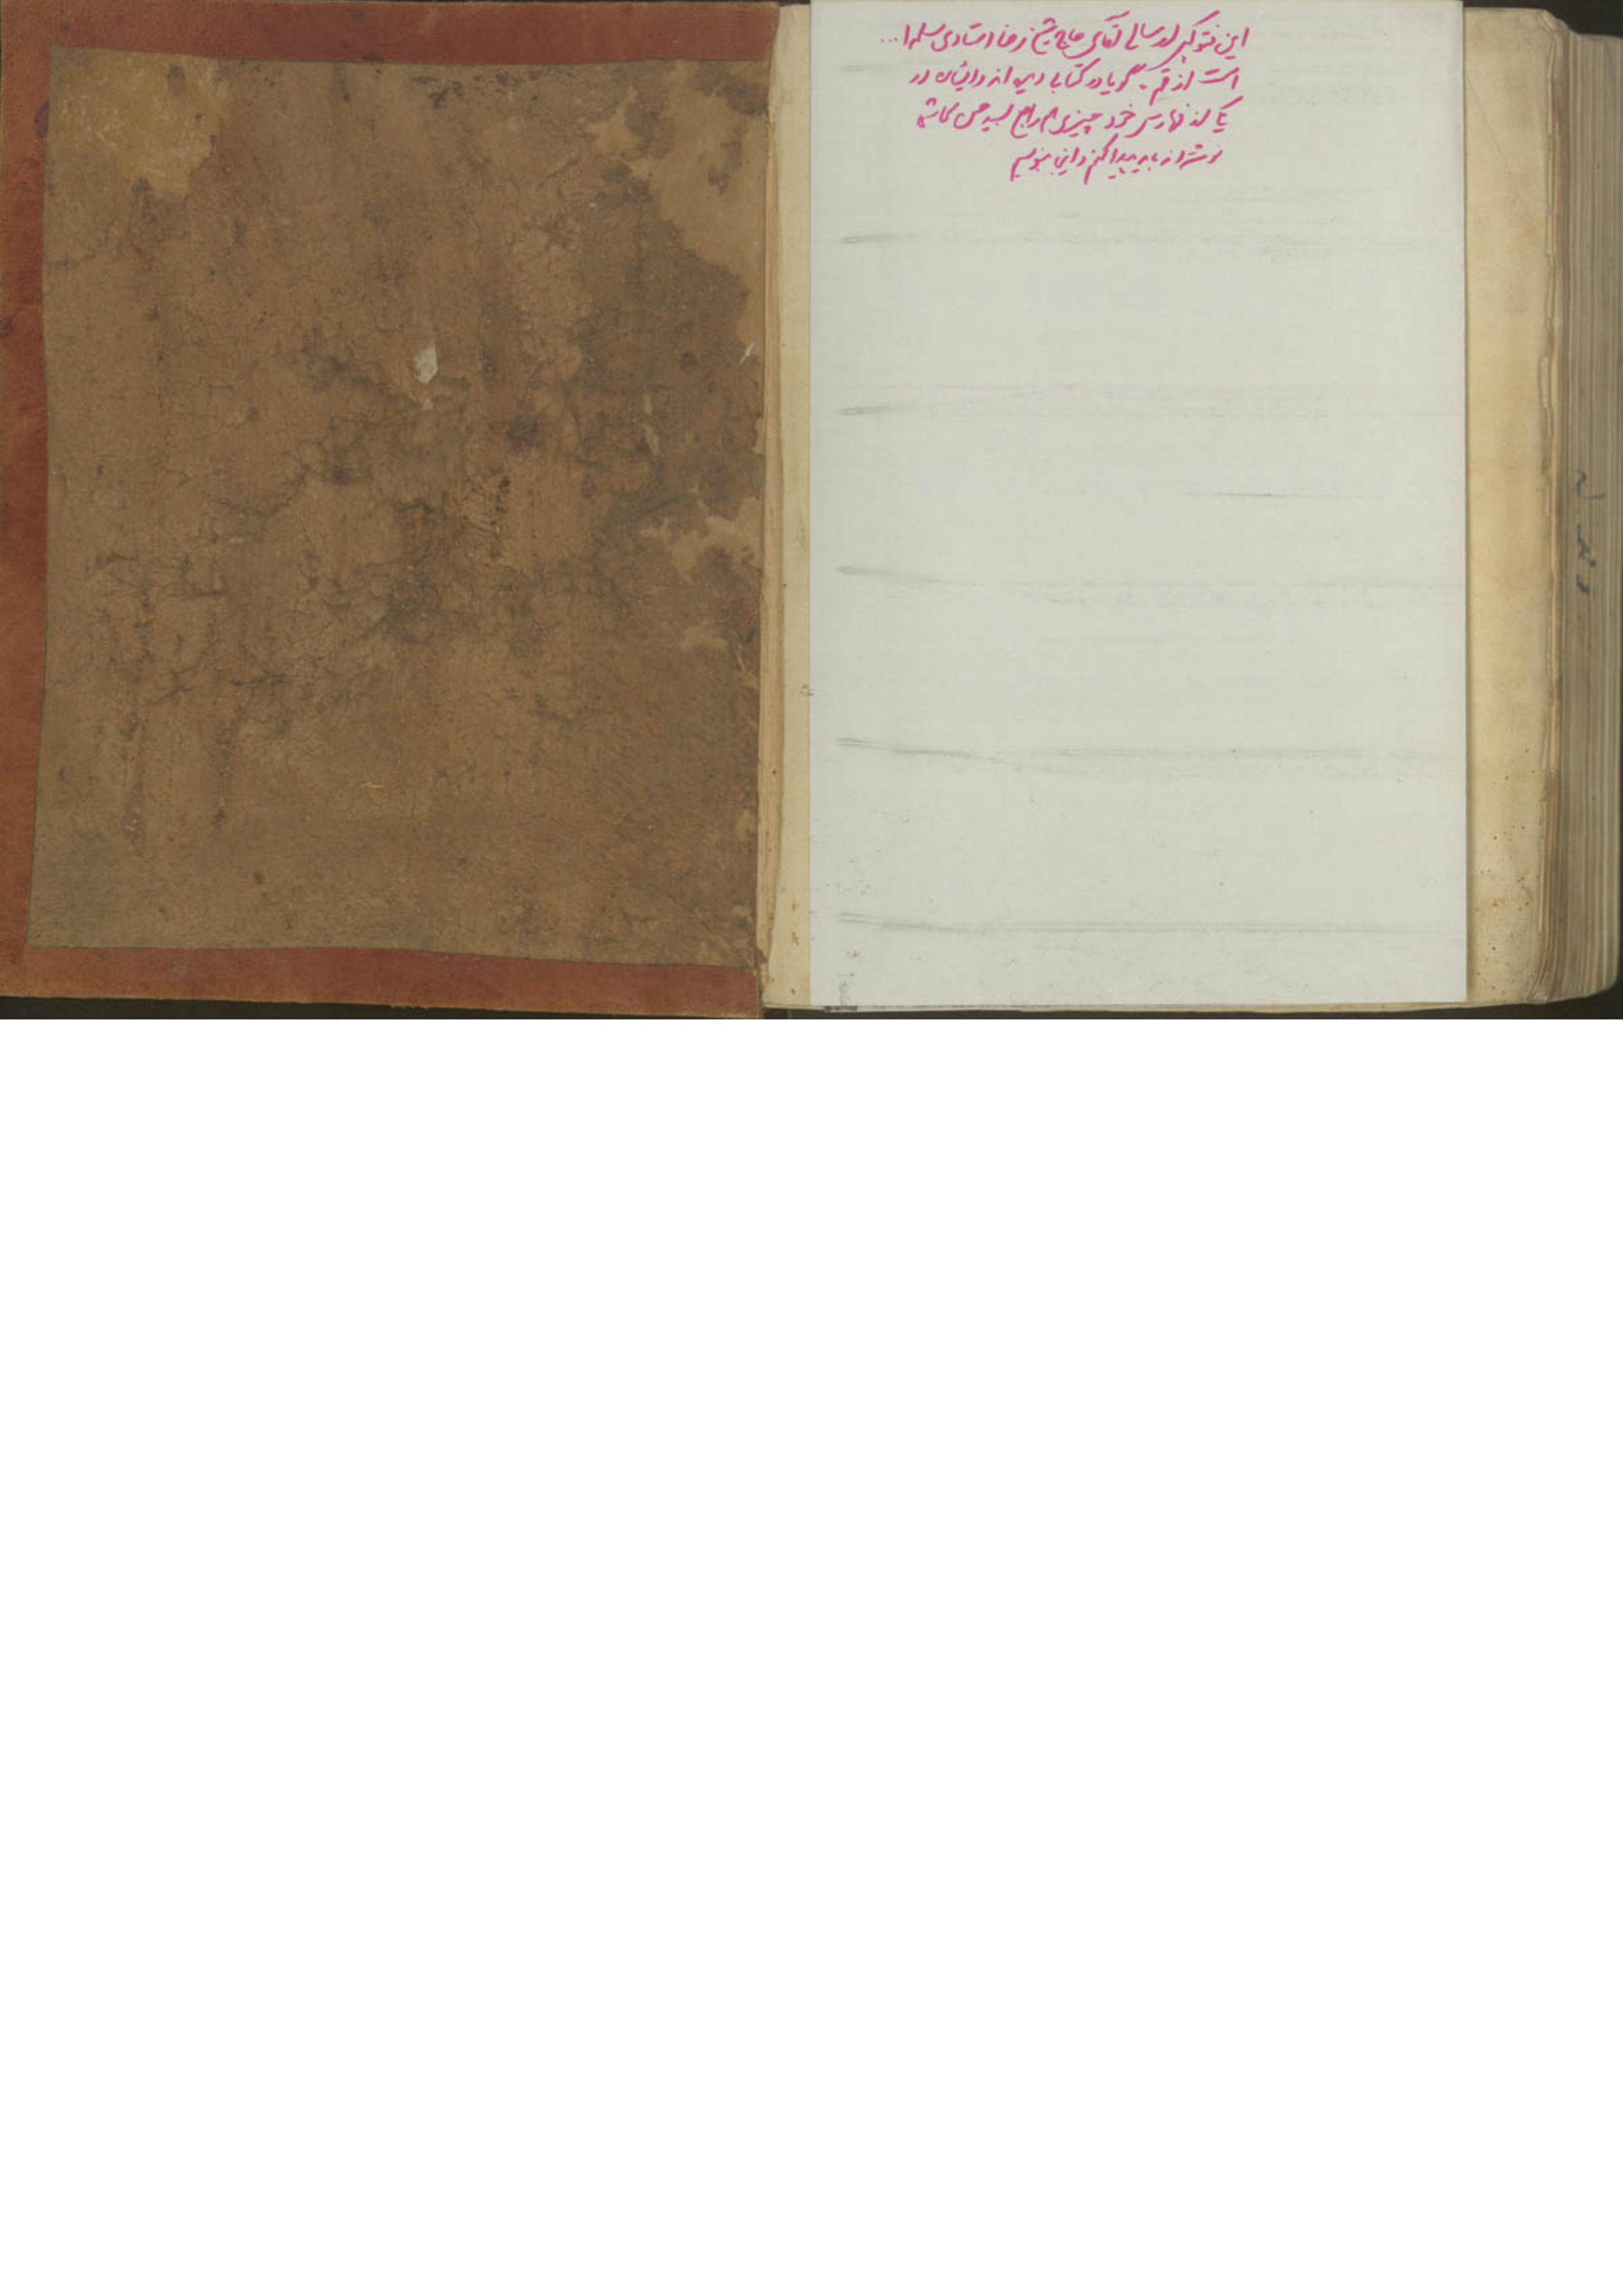 این فتوکپی ارسالی آقای حاج شیخ رضا استادی سلمه ا...
است از قم. گویا در کتابی دیده‌اند و ایشان در
یکی از فهارس خود چیزی هم راجع به سید حسن
نوشته‌اند باید پیدا کنم و اینجا بنویسم